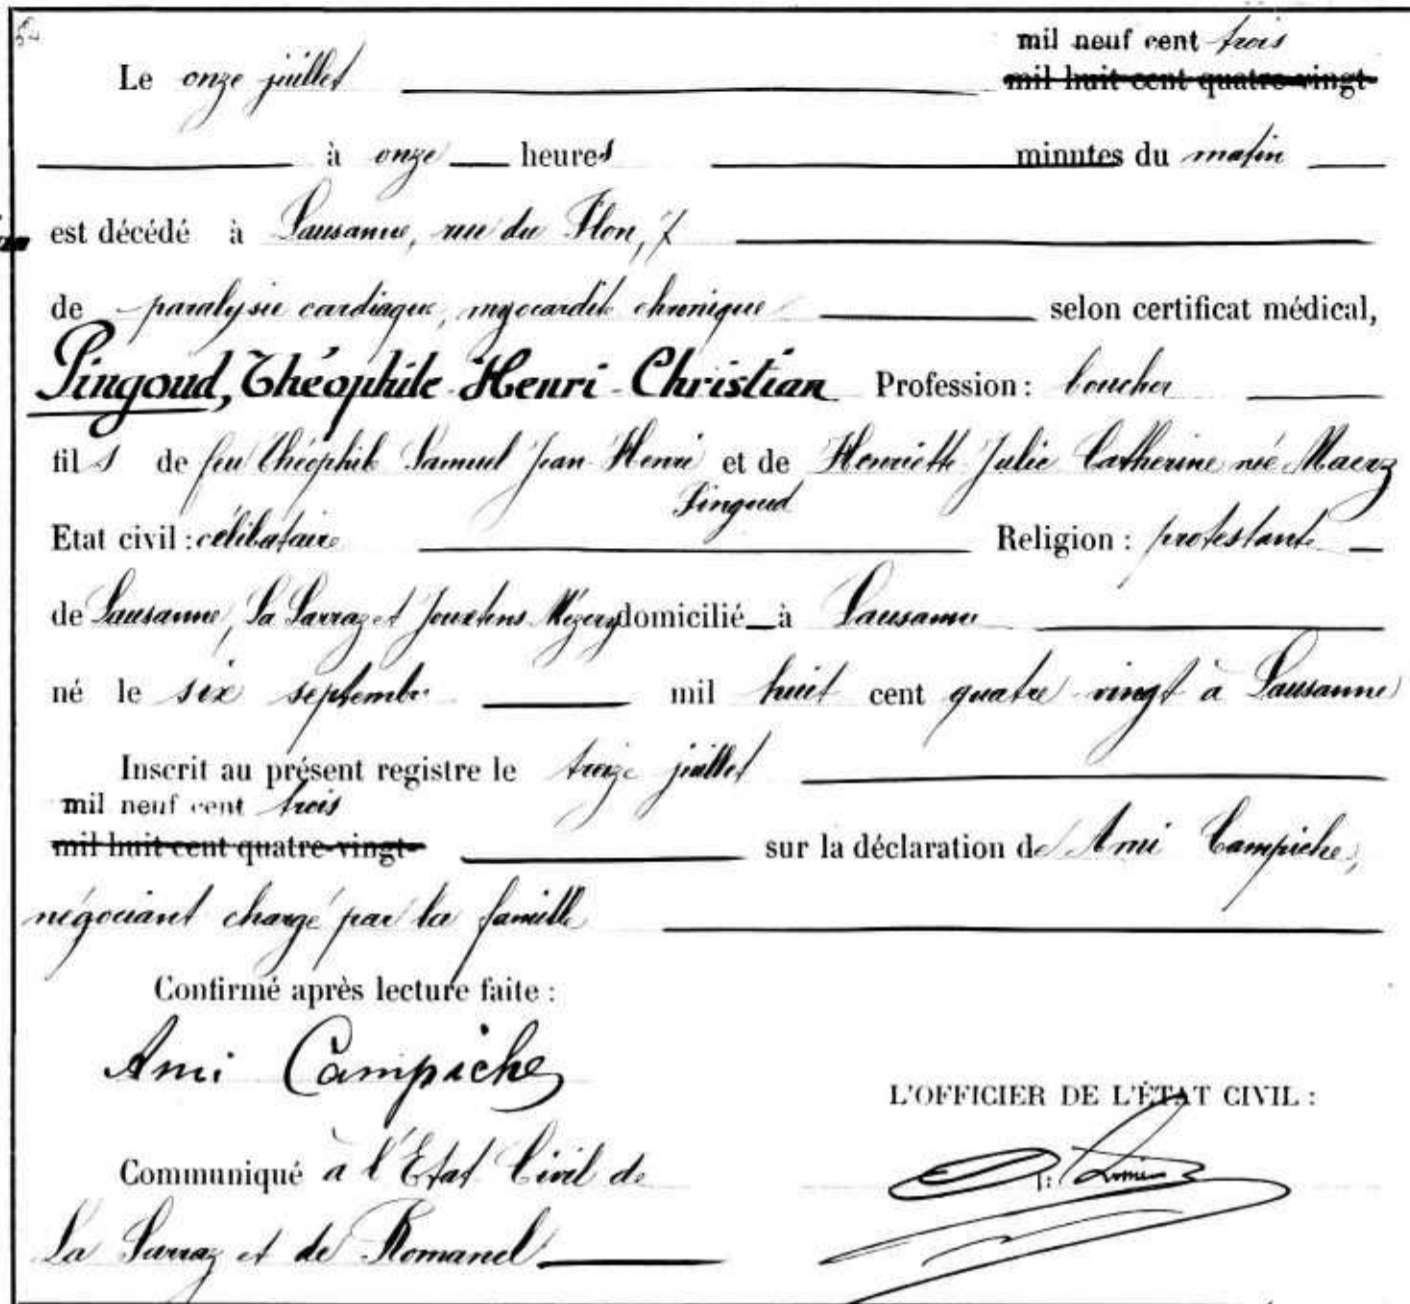 mil neuf cent trois
Le onze juillet mil huit cent quatre-vingt-
à onze heures minutes du matin
est décédé à Lausanne, rue du Flon, 7
de paralysie cardiaque, myocardite chronique selon certificat médical,
Pingoud, Théophile-Henri-Christian Profession: boucher
fils de feu Théophile Samuel Jean-Henri et de Henriette Julie Catherine née Maerz
Pingoud
Etat civil: célibataire Religion: protestante
de Lausanne, La Sarraz et Jouxtens Mézery domicilié à Lausanne
né le six septembre mil huit cent quatre-vingt à Lausanne
Inscrit au présent registre le treize juillet
mil neuf cent trois
mil huit cent quatre-vingt- sur la déclaration de Ami Campiche,
négociant chargé par la famille
Confirmé après lecture faite:
Ami Campiche
L'OFFICIER DE L'ÉTAT CIVIL:
Communiqué à l'Etat Civil de
La Sarraz et de Romanel